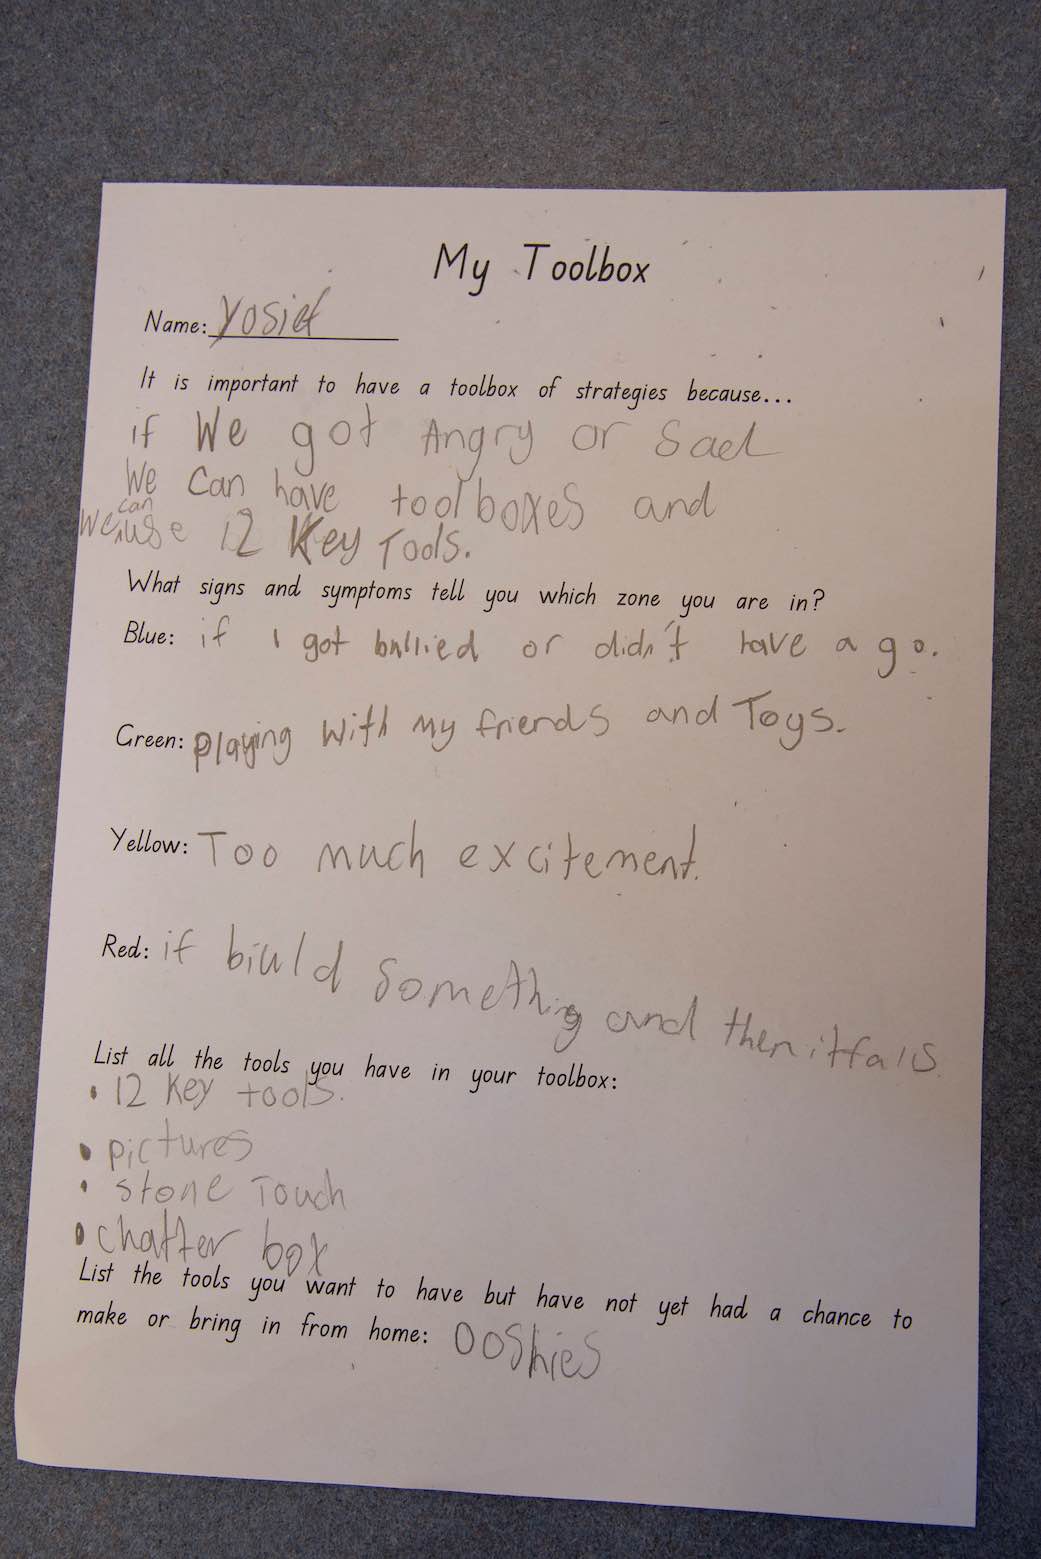 My Toolbox
Name: Yosief
It is important to have a toolbox of strategies because...
if We got Angry or Sad
We Can have toolboxes and
can
We use 12 Key Tools.
What signs and symptoms tell you which zone you are in?
Blue: if I got bullied or didn't have a go.
Green: playing with My friends and Toys.
Yellow: Too much excitement.
Red: if biuld something and then it falls
List all the tools you have in your toolbox:
• 12 Key tools.
• pictures
• stone Touch
• chatter box
List the tools you want to have but have not yet had a chance to
make or bring in from home: Ooshies